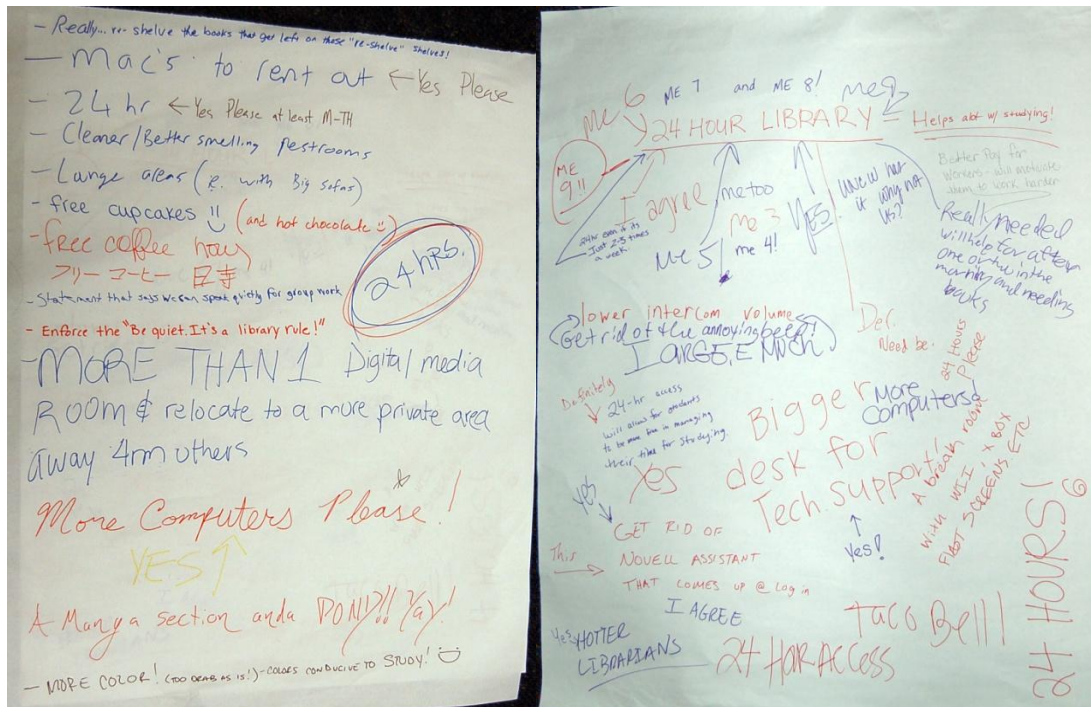 - Really... re-shelve the books that get left on those "re-shelve" shelves!
- Mac's to rent out ← Yes Please
- 24 hr ← Yes Please at least M-TH
- Cleaner/Better smelling restrooms
- Lounge areas (ie. with Big sofas)
- free cupcakes (and hot chocolate :)
- free coffee hours
フリーコーヒー
24 hrs.
- Statement that says we can speak quietly for group work
- Enforce the "Be quiet. It's a library rule!"
- MORE THAN 1 Digital media
ROOM & relocate to a more private area
away 4rm others
More Computers Please!
YES ↑
A Manga section and a PONY!!! Yay!
- MORE COLOR! (TOO DRAB AS IS!) - COLORS CONDUCIVE TO STUDY!
me 6 ME 7 and ME 8! me 9
24 HOUR LIBRARY
Helps abt w/ studying!
ME 9!!
I agree
me too
me 3
me 4!
Me 5
YES
24hr even if its
Just 2-3 times
a week
UNCW has
it why not
us?
Better Pay for
workers - will motivate
them to work harder
Really needed
will help for after
one or two in the
morning and needing
books
lower intercom volume
Get rid of the annoying beep!
Def.
Need be.
24 Hours
Please
Definitely
24-hr access
will allow for students
to be more free in managing
their time for studying.
Yes
Bigger
desk for
Tech. support!
Yes!
More
Computers!
A break room
with WII, X BOX
FLAT SCREENS, ETC
Yes
This →
GET RID OF
NOVELL ASSISTANT
THAT COMES UP @ Log in
I AGREE
Yes, HOTTER
LIBRARIANS
24 HOUR ACCESS
Taco Bell!
24 HOURS!